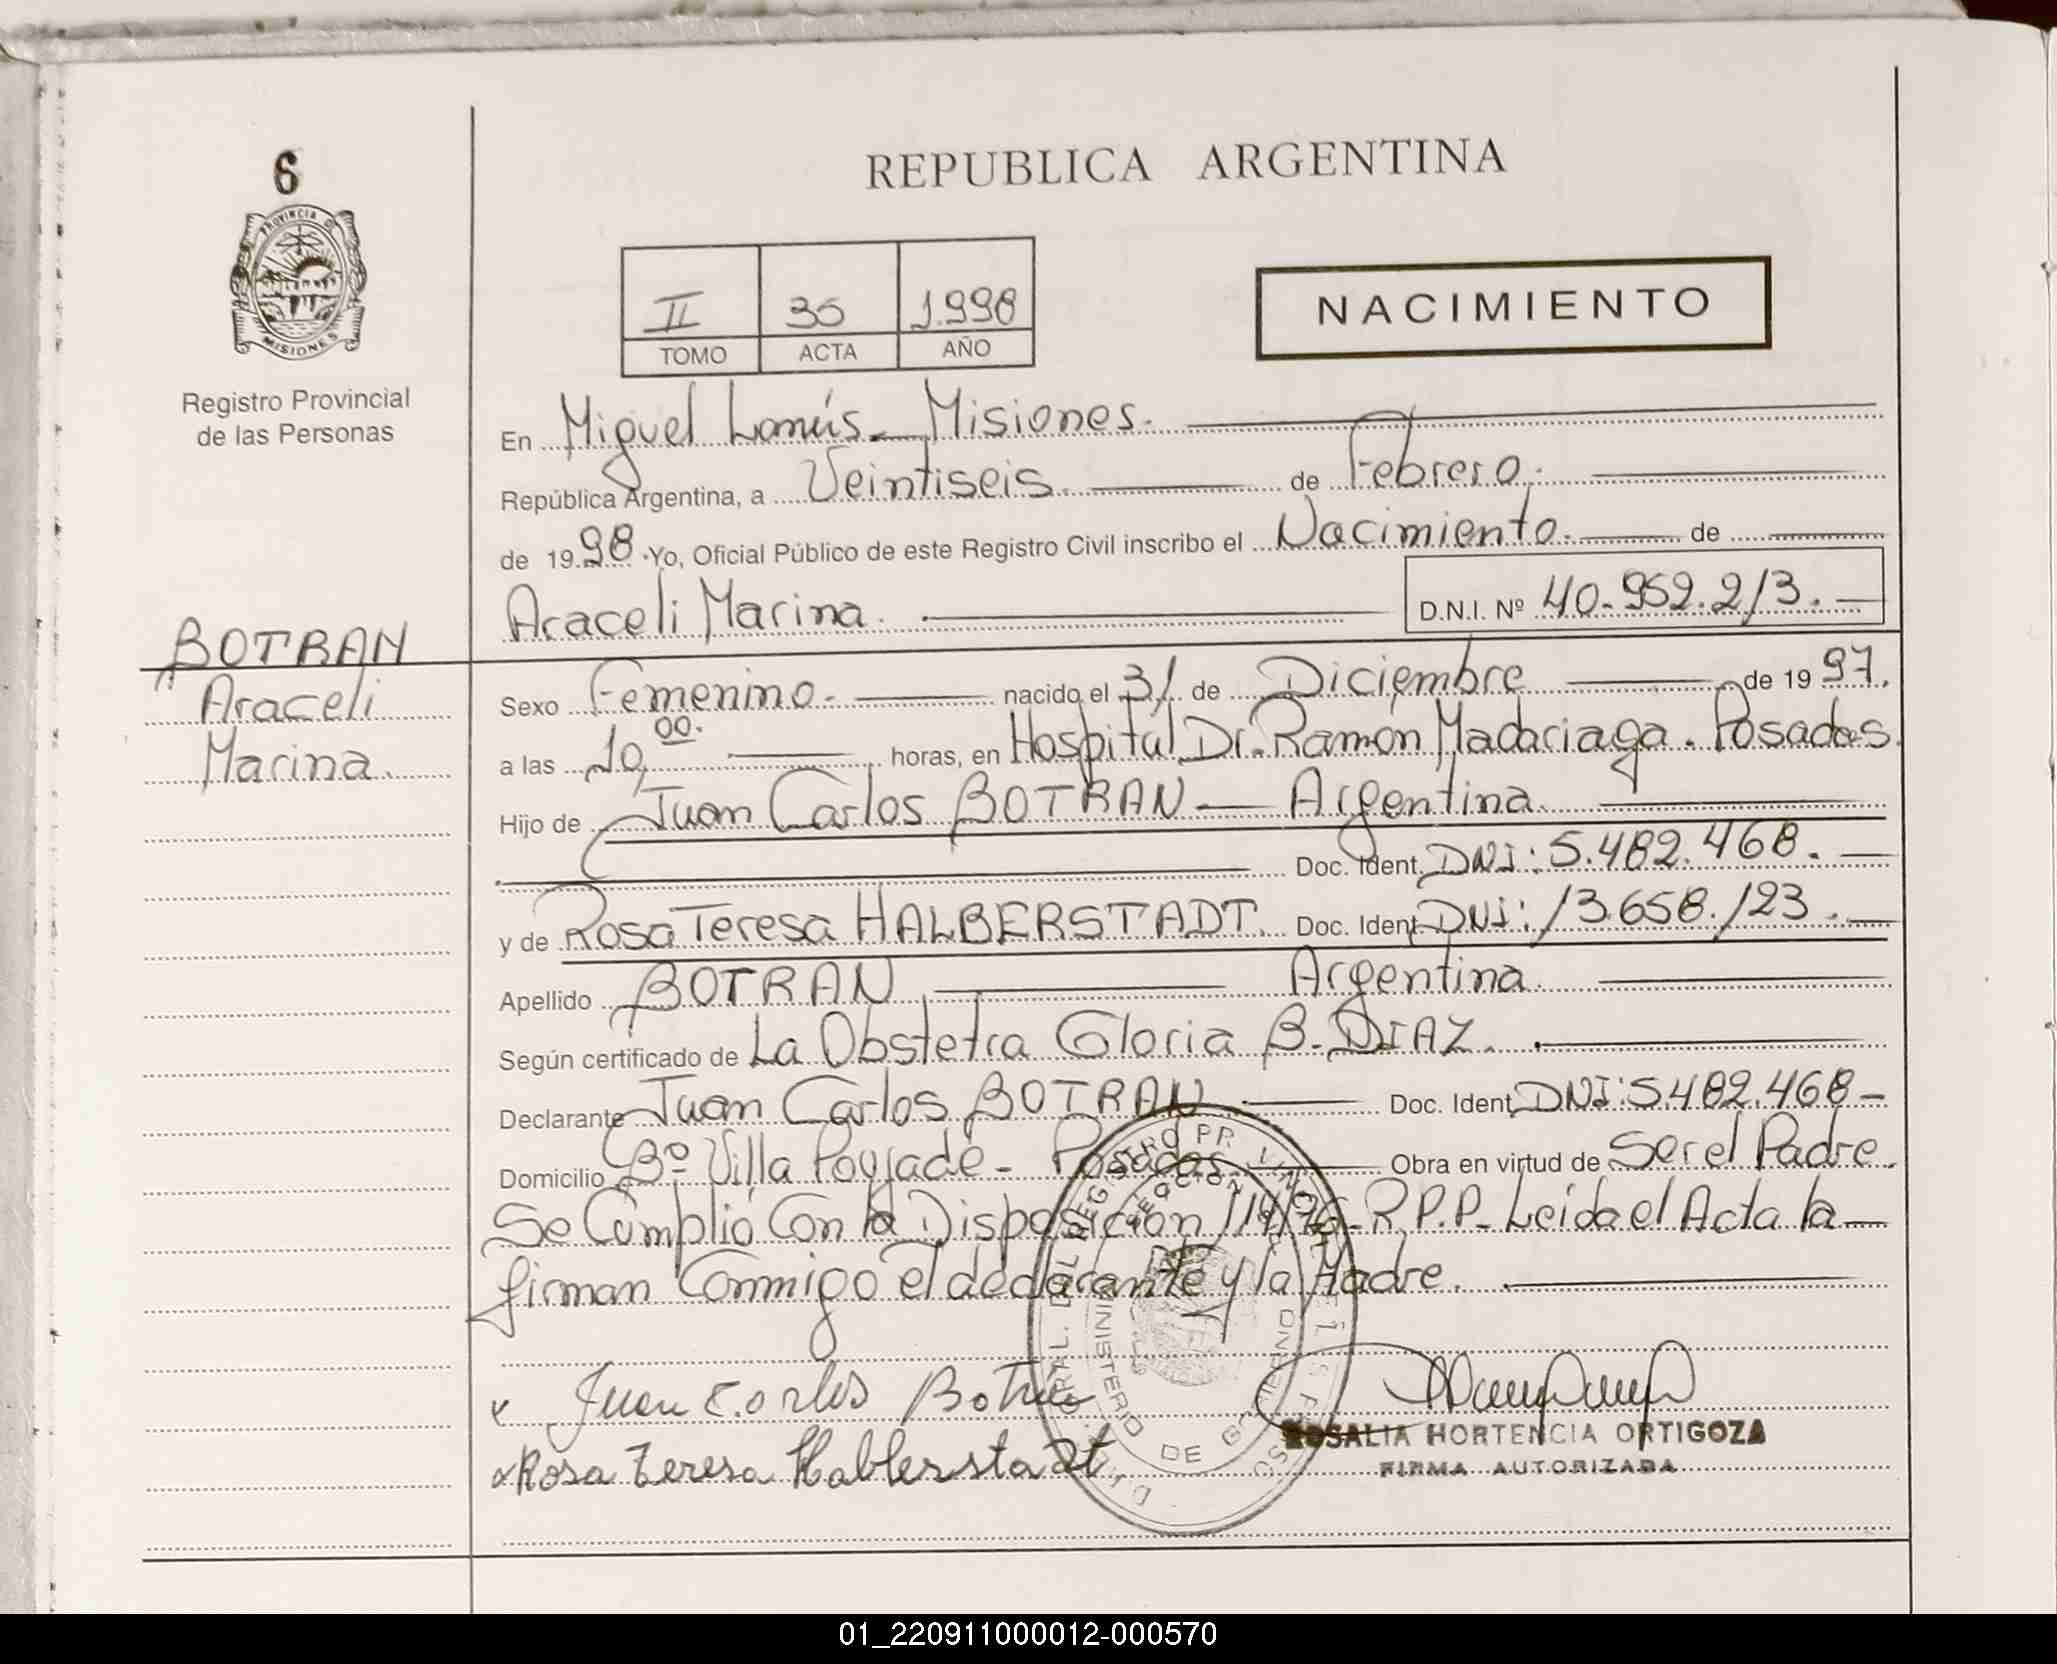 6
REPUBLICA ARGENTINA
PROVINCIA D
MISIONES
Registro Provincial
de las Personas
II 35 1.998
TOMO ACTA AÑO
NACIMIENTO
En Miguel Lanús - Misiones.
República Argentina, a Veintiseis. de Febrero.
de 19 98. Yo, Oficial Público de este Registro Civil inscribo el Nacimiento. de
Araceli Marina. D.N.I. Nº 40.952.213.
BOTRAN
Araceli
Marina.
Sexo Femenino. nacido el 31 de Diciembre de 19 97.
a las 10,00. horas, en Hospital Dr. Ramón Madariaga. Posadas.
Hijo de Juan Carlos BOTRAN — Argentina.
Doc. Ident. DNI: 5.482.468.
y de Rosa Teresa HALBERSTADT. Doc. Ident. DNI: 13.658.123.
Apellido BOTRAN Argentina.
Según certificado de La Obstetra Gloria B. DIAZ.
Declarante Juan Carlos BOTRAN Doc. Ident. DNI: 5.482.468-
Domicilio Bº Villa Poujade - Posadas. Obra en virtud de Ser el Padre.
Se Cumplió Con la Disposición 119/76-R.P.P- Leída el Acta la
firman Conmigo el declarante y la Madre.
x Juan Carlos
x Rosa Teresa Hablerstadt
MINISTERIO DE GOBIERNO
ROSALIA HORTENCIA ORTIGOZA
FIRMA AUTORIZADA
01_220911000012-000570